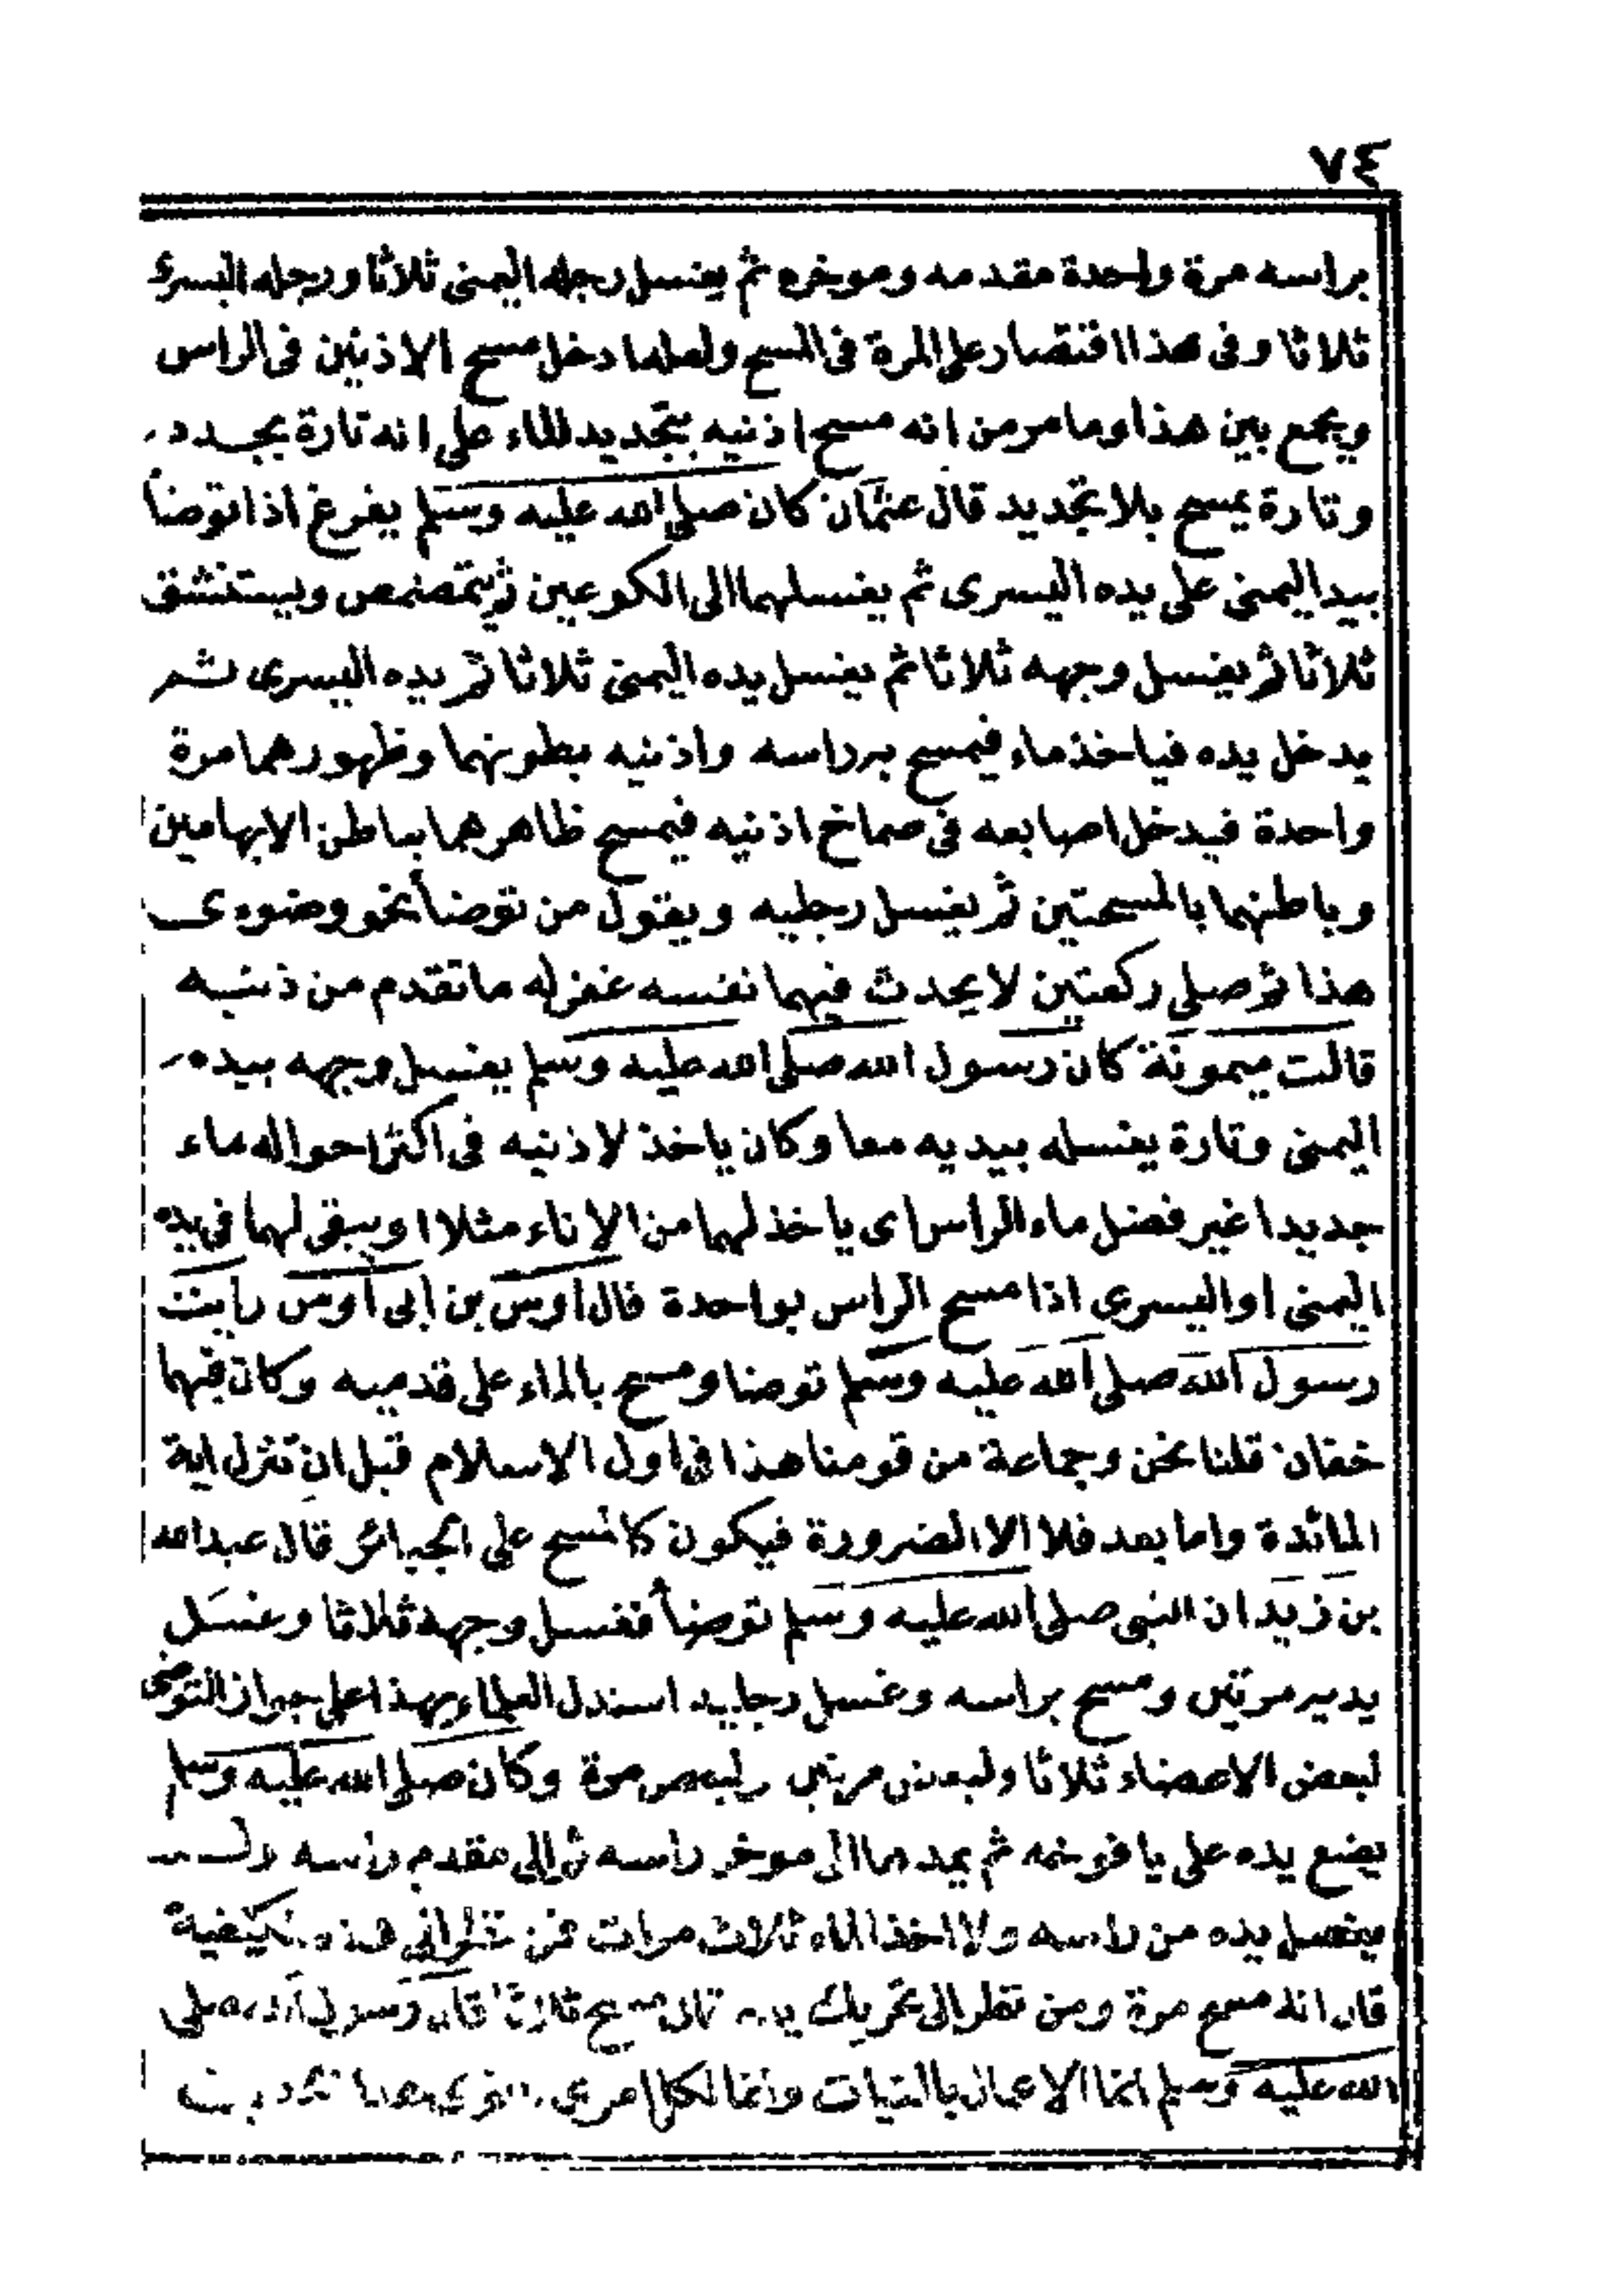 ٧٤
براسه مرة واحدة مقدمه وموخره ثم يغسل رجله اليمنى ثلاثا ورجله اليسرى
ثلاثا وفى هذا اقتصار على المرة فى المسح ولعلها دخل مسح الاذنين فى الراس
ويجمع بين هذا وما مر من انه مسح اذنيه بتجديد للماء على انه تارة يجدد
وتارة يمسح بلا تجديد قال عثمان كان صلى الله عليه وسلم يفرغ اذا توضأ
بيد اليمنى على يده اليسرى ثم يغسلهما الى الكوعين ثم يتمضمض ويستنشق
ثلاثا ثم يغسل وجهه ثلاثا ثم يغسل يده اليمنى ثلاثا ثم يده اليسرى ثم
يدخل يده فياخذ ماء فيمسح براسه واذنيه بطونهما وظهورهما مرة
واحدة فيدخل اصابعه فى صماخ اذنيه فيمسح ظاهرهما بباطن الابهامين
وباطنهما بالمسبحتين ثم يغسل رجليه ويقول من توضأ نحو وضوءى
هذا ثم صلى ركعتين لا يحدث فيهما نفسه غفر له ما تقدم من ذنبه
قالت ميمونة كان رسول الله صلى الله عليه وسلم يغسل وجهه بيده
اليمنى وتارة يغسله بيديه معا وكان ياخذ لاذنيه فى اكثر احواله ماء
جديدا غير فضل ماء الراس اى ياخذ لهما من الاناء مثلا او يبقى لهما فى يده
اليمنى او اليسرى اذا مسح الراس بواحدة قال اوس بن أبى أوس رايت
رسول الله صلى الله عليه وسلم توضا ومسح بالماء على قدميه وكان فيهما
خفان قلنا نحن وجماعة من قومنا هذا فى اول الاسلام قبل ان تنزل اية
المائدة واما بعد فلا الا لضرورة فيكون كالمسح على الجبائر قال عبدالله
بن زيد ان النبى صلى الله عليه وسلم توضأ فغسل وجهه ثلاثا وغسل
يديه مرتين ومسح براسه وغسل رجليه استدل العلماء بهذا على جواز التوضى
لبعض الاعضاء ثلاثا ولبعض مرتين ولبعض مرة وكان صلى الله عليه وسلم
يضع يده على يافوخه ثم يمدهما الى موخر راسه ثم الى مقدم راسه ولم
يفصل يده من راسه ولا اخذ الماء ثلاث مرات فمن نظر الى هذه الكيفية
قال انه مسح مرة ومن نظر الى تحريك يده قال مسح ثلاثا قال رسول الله صلى
الله عليه وسلم انما الاعمال بالنيات وانما لكل امرى